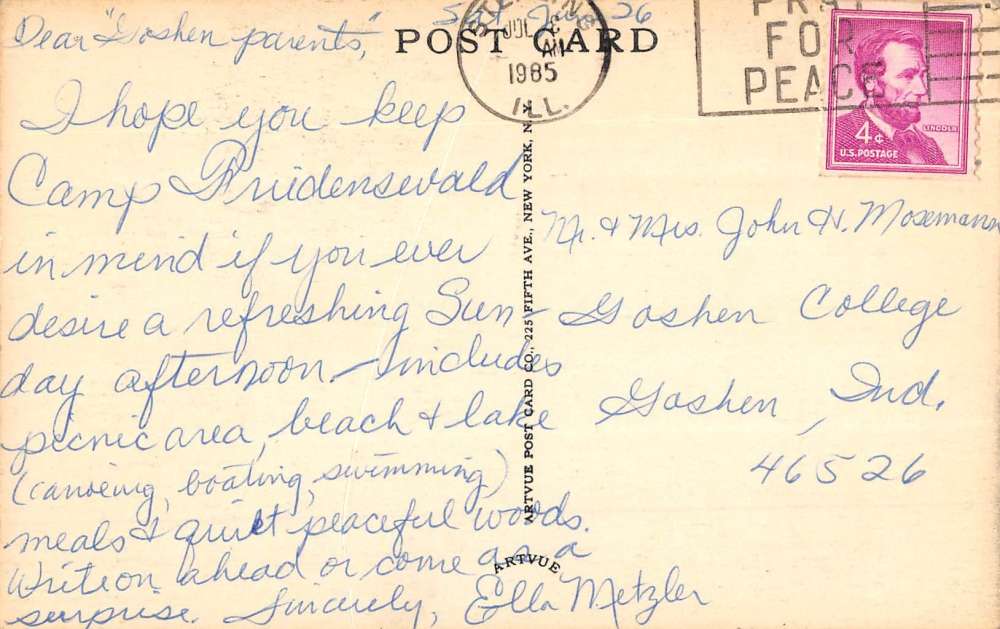 Dear "Goshen parents,"
POST CARD
JUL
AM
1985
ILL.
PRAY
FOR
PEACE
4¢
LINCOLN
U.S. POSTAGE
I hope you keep
Camp Friedenswald
in mind if you ever
desire a refreshing Sun-
day afternoon - includes
picnic area, beach & lake
(canoeing, boating, swimming)
meals & quiet peaceful woods.
Write on ahead or come as a
surprise. Sincerely, Ella Metzler
ARTVUE POST CARD CO., 225 FIFTH AVE., NEW YORK, N.Y.
ARTVUE
Mr. & Mrs. John H. Mosemann
Goshen College
Goshen, Ind.
46526